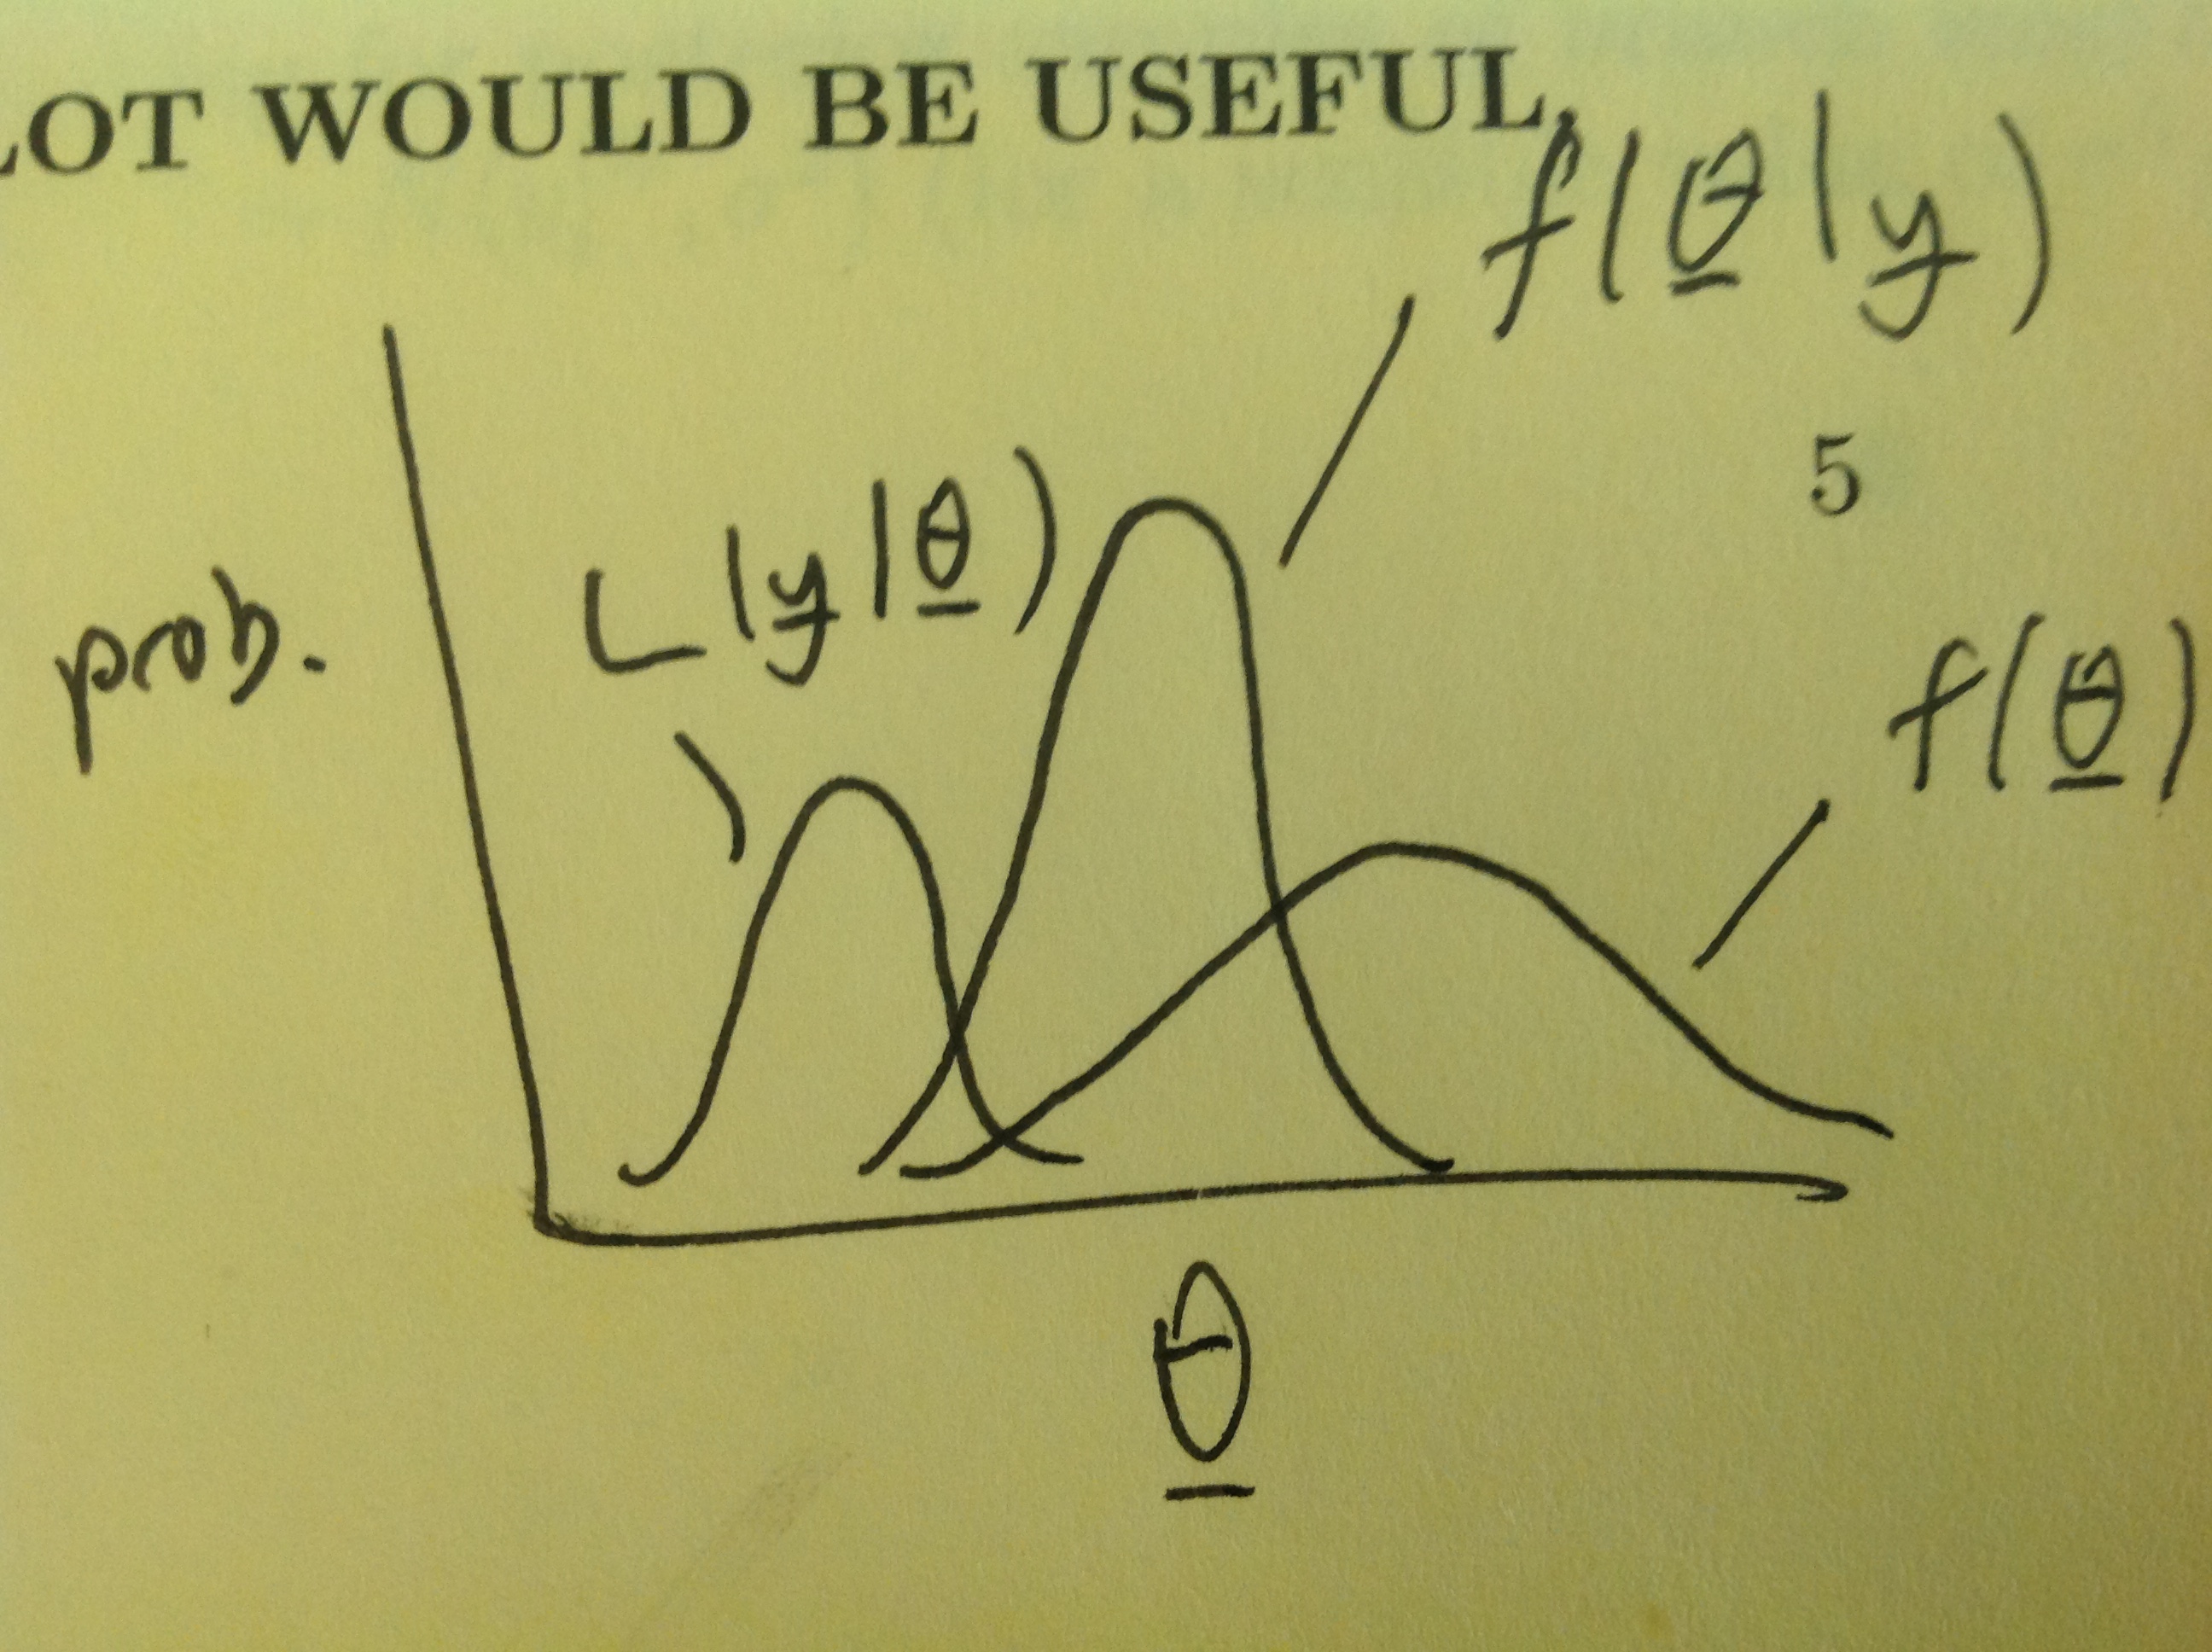 LOT WOULD BE USEFUL,
f(θ|y)
5
L(y|θ)
prob.
f(θ)
θ